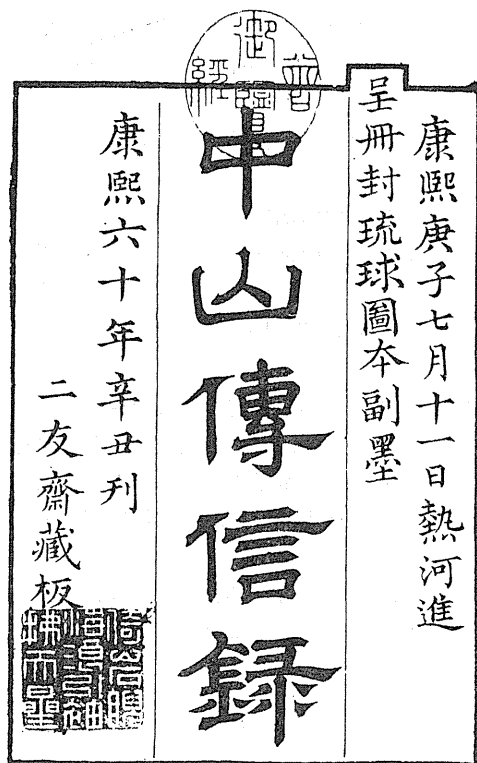 曾經御覽
康熙庚子七月十一日熱河進
呈冊封琉球圖本副墨
中山傳信録
康熙六十年辛丑刊
二友齋藏板